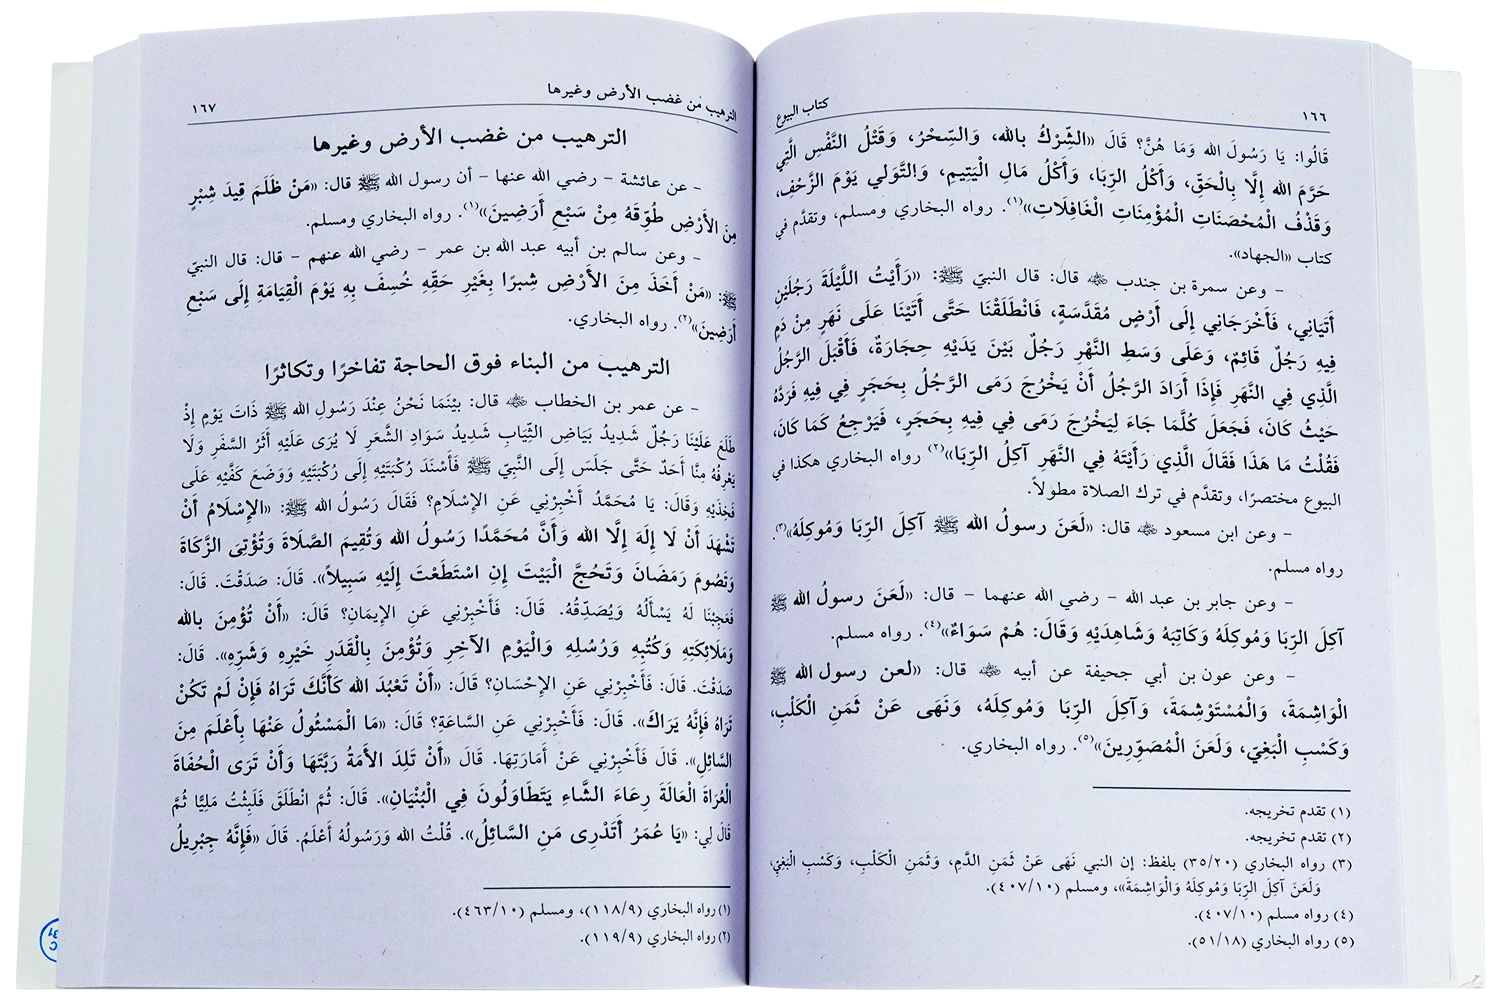 ١٦٦
كتاب البيوع
قَالُوا: يَا رَسُولَ الله وَمَا هُنَّ؟ قَالَ «الشِّرْكُ بالله، وَالسِّحْرُ، وَقَتْلُ النَّفْسِ الَّتِي
حَرَّمَ الله إلَّا بِالْحَقِّ، وَأَكْلُ الرِّبَا، وَأَكْلُ مَالِ الْيَتِيمِ، وَالتَّوَلي يَوْمَ الزَّحْفِ،
وَقَذْفُ الْمُحْصَنَاتِ الْمُؤْمِنَاتِ الْغَافِلَاتِ»(١). رواه البخاري ومسلم، وتقدَّم في
كتاب «الجهاد».
– وعن سمرة بن جندب ﵁ قال: قال النبيّ ﷺ: «رَأَيْتُ اللَّيْلَةَ رَجُلَيْنِ
أَتَيَانِي، فَأَخْرَجَانِي إلَى أَرْضٍ مُقَدَّسَةٍ، فَانْطَلَقْنَا حَتَّى أَتَيْنَا عَلَى نَهَرٍ مِنْ دَمٍ
فِيهِ رَجُلٌ قَائِمٌ، وَعَلَى وَسَطِ النَّهْرِ رَجُلٌ بَيْنَ يَدَيْهِ حِجَارَةٌ، فَأَقْبَلَ الرَّجُلُ
الَّذِي فِي النَّهَرِ فَإِذَا أَرَادَ الرَّجُلُ أَنْ يَخْرُجَ رَمَى الرَّجُلُ بِحَجَرٍ فِي فِيهِ فَرَدَّهُ
حَيْثُ كَانَ، فَجَعَلَ كُلَّمَا جَاءَ لِيَخْرُجَ رَمَى فِي فِيهِ بِحَجَرٍ، فَيَرْجِعُ كَمَا كَانَ،
فَقُلْتُ مَا هَذَا فَقَالَ الَّذِي رَأَيْتَهُ فِي النَّهَرِ آكِلُ الرِّبَا»(٢) رواه البخاري هكذا في
البيوع مختصرًا، وتقدَّم في ترك الصلاة مطولاً.
– وعن ابن مسعود ﵁ قال: «لَعَنَ رسولُ الله ﷺ آكِلَ الرِّبَا وَمُوكِلَهُ»(٣).
رواه مسلم.
– وعن جابر بن عبد الله – رضي الله عنهما – قال: «لَعَنَ رسولُ الله ﷺ
آكِلَ الرِّبَا وَمُوكِلَهُ وَكَاتِبَهُ وَشَاهِدَيْهِ وَقَالَ: هُمْ سَوَاءٌ»(٤). رواه مسلم.
– وعن عون بن أبي جحيفة عن أبيه ﵁ قال: «لعن رسول الله ﷺ
الْوَاشِمَةَ، وَالْمُسْتَوْشِمَةَ، وَآكِلَ الرِّبَا وَمُوكِلَهُ، وَنَهَى عَنْ ثَمَنِ الْكَلْبِ،
وَكَسْبِ الْبَغِيِّ، وَلَعَنَ الْمُصَوِّرِينَ»(٥). رواه البخاري.
(١) تقدم تخريجه.
(٢) تقدم تخريجه.
(٣) رواه البخاري (٣٥/٢٠) بلفظ: إن النبي نَهَى عَنْ ثَمَنِ الدَّمِ، وَثَمَنِ الْكَلْبِ، وَكَسْبِ الْبَغِيِّ،
وَلَعَنَ آكِلَ الرِّبَا وَمُوكِلَهُ وَالْوَاشِمَةَ»، ومسلم (٤٠٧/١٠).
(٤) رواه مسلم (٤٠٧/١٠).
(٥) رواه البخاري (٥١/١٨).
الترهيب من غضب الأرض وغيرها
١٦٧
الترهيب من غضب الأرض وغيرها
– عن عائشة – رضي الله عنها – أن رسول الله ﷺ قال: «مَنْ ظَلَمَ قِيدَ شِبْرٍ
مِنَ الأَرْضِ طُوِّقَهُ مِنْ سَبْعِ أَرَضِينَ»(١). رواه البخاري ومسلم.
– وعن سالم بن أبيه عبد الله بن عمر – رضي الله عنهم – قال: قال النبيّ
ﷺ: «مَنْ أَخَذَ مِنَ الأَرْضِ شِبرًا بِغَيْرِ حَقِّهِ خُسِفَ بِهِ يَوْمَ الْقِيَامَةِ إلَى سَبْعِ
أَرَضِينَ»(٢). رواه البخاري.
الترهيب من البناء فوق الحاجة تفاخرًا وتكاثرًا
– عن عمر بن الخطاب ﵁ قال: بيْنَمَا نَحْنُ عِنْدَ رَسُولِ الله ﷺ ذَاتَ يَوْمٍ إذْ
طَلَعَ عَلَيْنَا رَجُلٌ شَدِيدُ بَيَاضِ الثِّيَابِ شَدِيدُ سَوَادِ الشَّعَرِ لَا يُرَى عَلَيْهِ أَثَرُ السَّفَرِ وَلَا
يَعْرِفُهُ مِنَّا أَحَدٌ حَتَّى جَلَسَ إلَى النَّبِيِّ ﷺ فَأَسْنَدَ رُكْبَتَيْهِ إلَى رُكْبَتَيْهِ وَوَضَعَ كَفَّيْهِ عَلَى
فَخِذَيْهِ وَقَالَ: يَا مُحَمَّدُ أَخْبِرْنِي عَنِ الإِسْلَامِ؟ فَقَالَ رَسُولُ الله ﷺ: «الإسْلَامُ أَنْ
تَشْهَدَ أَنْ لَا إلَهَ إلَّا الله وَأَنَّ مُحَمَّدًا رَسُولُ الله وَتُقِيمَ الصَّلَاةَ وَتُؤْتِيَ الزَّكَاةَ
وَتَصُومَ رَمَضَانَ وَتَحُجَّ الْبَيْتَ إنِ اسْتَطَعْتَ إلَيْهِ سَبِيلاً». قَالَ: صَدَقْتَ. قَالَ:
فَعَجِبْنَا لَهُ يَسْأَلُهُ وَيُصَدِّقُهُ. قَالَ: فَأَخْبِرْنِي عَنِ الإِيمَانِ؟ قَالَ: «أَنْ تُؤْمِنَ بالله
وَمَلَائِكَتِهِ وَكُتُبِهِ وَرُسُلِهِ وَالْيَوْمِ الآخِرِ وَتُؤْمِنَ بِالْقَدَرِ خَيْرِهِ وَشَرِّهِ». قَالَ:
صَدَقْتَ. قَالَ: فَأَخْبِرْنِي عَنِ الإِحْسَانِ؟ قَالَ: «أَنْ تَعْبُدَ الله كَأَنَّكَ تَرَاهُ فَإِنْ لَمْ تَكُنْ
تَرَاهُ فَإِنَّهُ يَرَاكَ». قَالَ: فَأَخْبِرْنِي عَنِ السَّاعَةِ؟ قَالَ: «مَا الْمَسْئُولُ عَنْهَا بِأَعْلَمَ مِنَ
السَّائِلِ». قَالَ فَأَخْبِرْنِي عَنْ أَمَارَتِهَا. قَالَ «أَنْ تَلِدَ الأَمَةُ رَبَّتَهَا وَأَنْ تَرَى الْحُفَاةَ
الْعُرَاةَ الْعَالَةَ رِعَاءَ الشَّاءِ يَتَطَاوَلُونَ فِي الْبُنْيَانِ». قَالَ: ثُمَّ انْطَلَقَ فَلَبِثْتُ مَلِيًّا ثُمَّ
قَالَ لِي: «يَا عُمَرُ أَتَدْرِى مَنِ السَّائِلُ». قُلْتُ الله وَرَسُولُهُ أَعْلَمُ. قَالَ «فَإِنَّهُ جِبْرِيلُ
(١) رواه البخاري (١١٨/٩)، ومسلم (٤٦٣/١٠).
(٢) رواه البخاري (١١٩/٩).